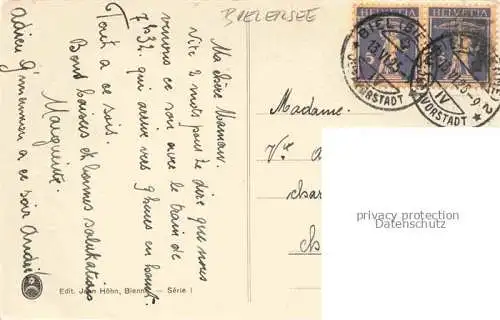 BIELERSEE
HELVETIA HELVETIA
5
BIEL BIEL
IV
Ma chère Maman.
Vite 2 mots pour te dire que nous
venons ce soir avec le train de
7 h 32. qui arrive vers 9 heures en haut.
Tout à ce soir.
Bons baisers et bonnes salutations
Marguerite.
Adieu à ce soir
Madame.
Vve
privacy protection
Datenschutz
Edit. Jean Höhn, Bienne — Série I